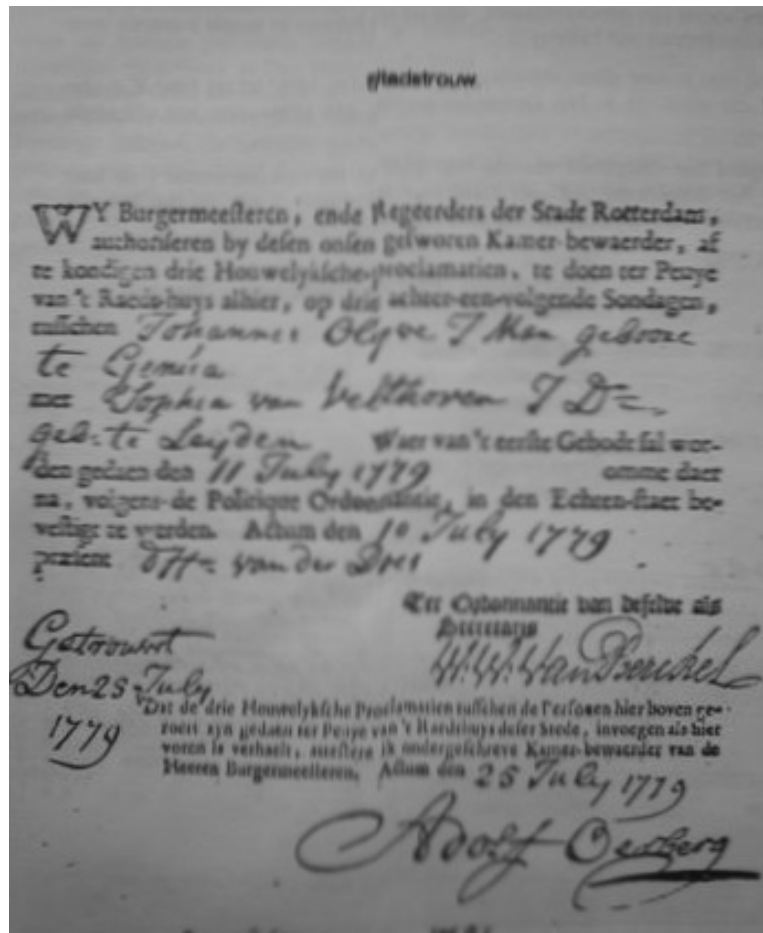 gijadstrouw.
WY Burgermeesteren, ende Regeerders der Stade Rotterdam,
authoriseren by desen onsen gesworen Kamer-bewaerder, af
te kondigen drie Houwelyksche-proclamatien, te doen ter Peuye
van 't Raedshuys alhier, op drie achter-een-volgende Sondagen,
tusschen Johannes Olyve J Man geboore
te Genua
met Sophia van Velthoven J D=
geb: te Leyden Waer van 't eerste Gebodt sal wor-
den gedaen den 11 July 1779 omme daer
na, volgens de Politique Ordonnantie, in den Echten-staet be-
vestigt te werden. Actum den 10 July 1779
præsent van der
Ter Ordonnantie van deselve als
Secretaris
W. W. Van Berckel
Getrouwt
Den 25 July
1779
Dat de drie Houwelyksche Proclamatien tusschen de Persoonen hier boven ge-
roert zyn gedaen ter Peuye van 't Raedthuys deser Stede, invoegen als hier
voren is verhaelt, attestere ik ondergeschreve Kamer-bewaerder van de
Heeren Burgermeesteren, Actum den 25 July 1779
Adolf